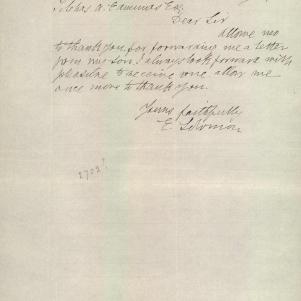 To Chas. A. Edmunds Esq
Dear Sir
Allow me
to thank you for forwarding me a letter
from my son. I always look forward with
pleasure to receive one allow me
once more to thank you.
Yours faithfully
E. Solomon
2702